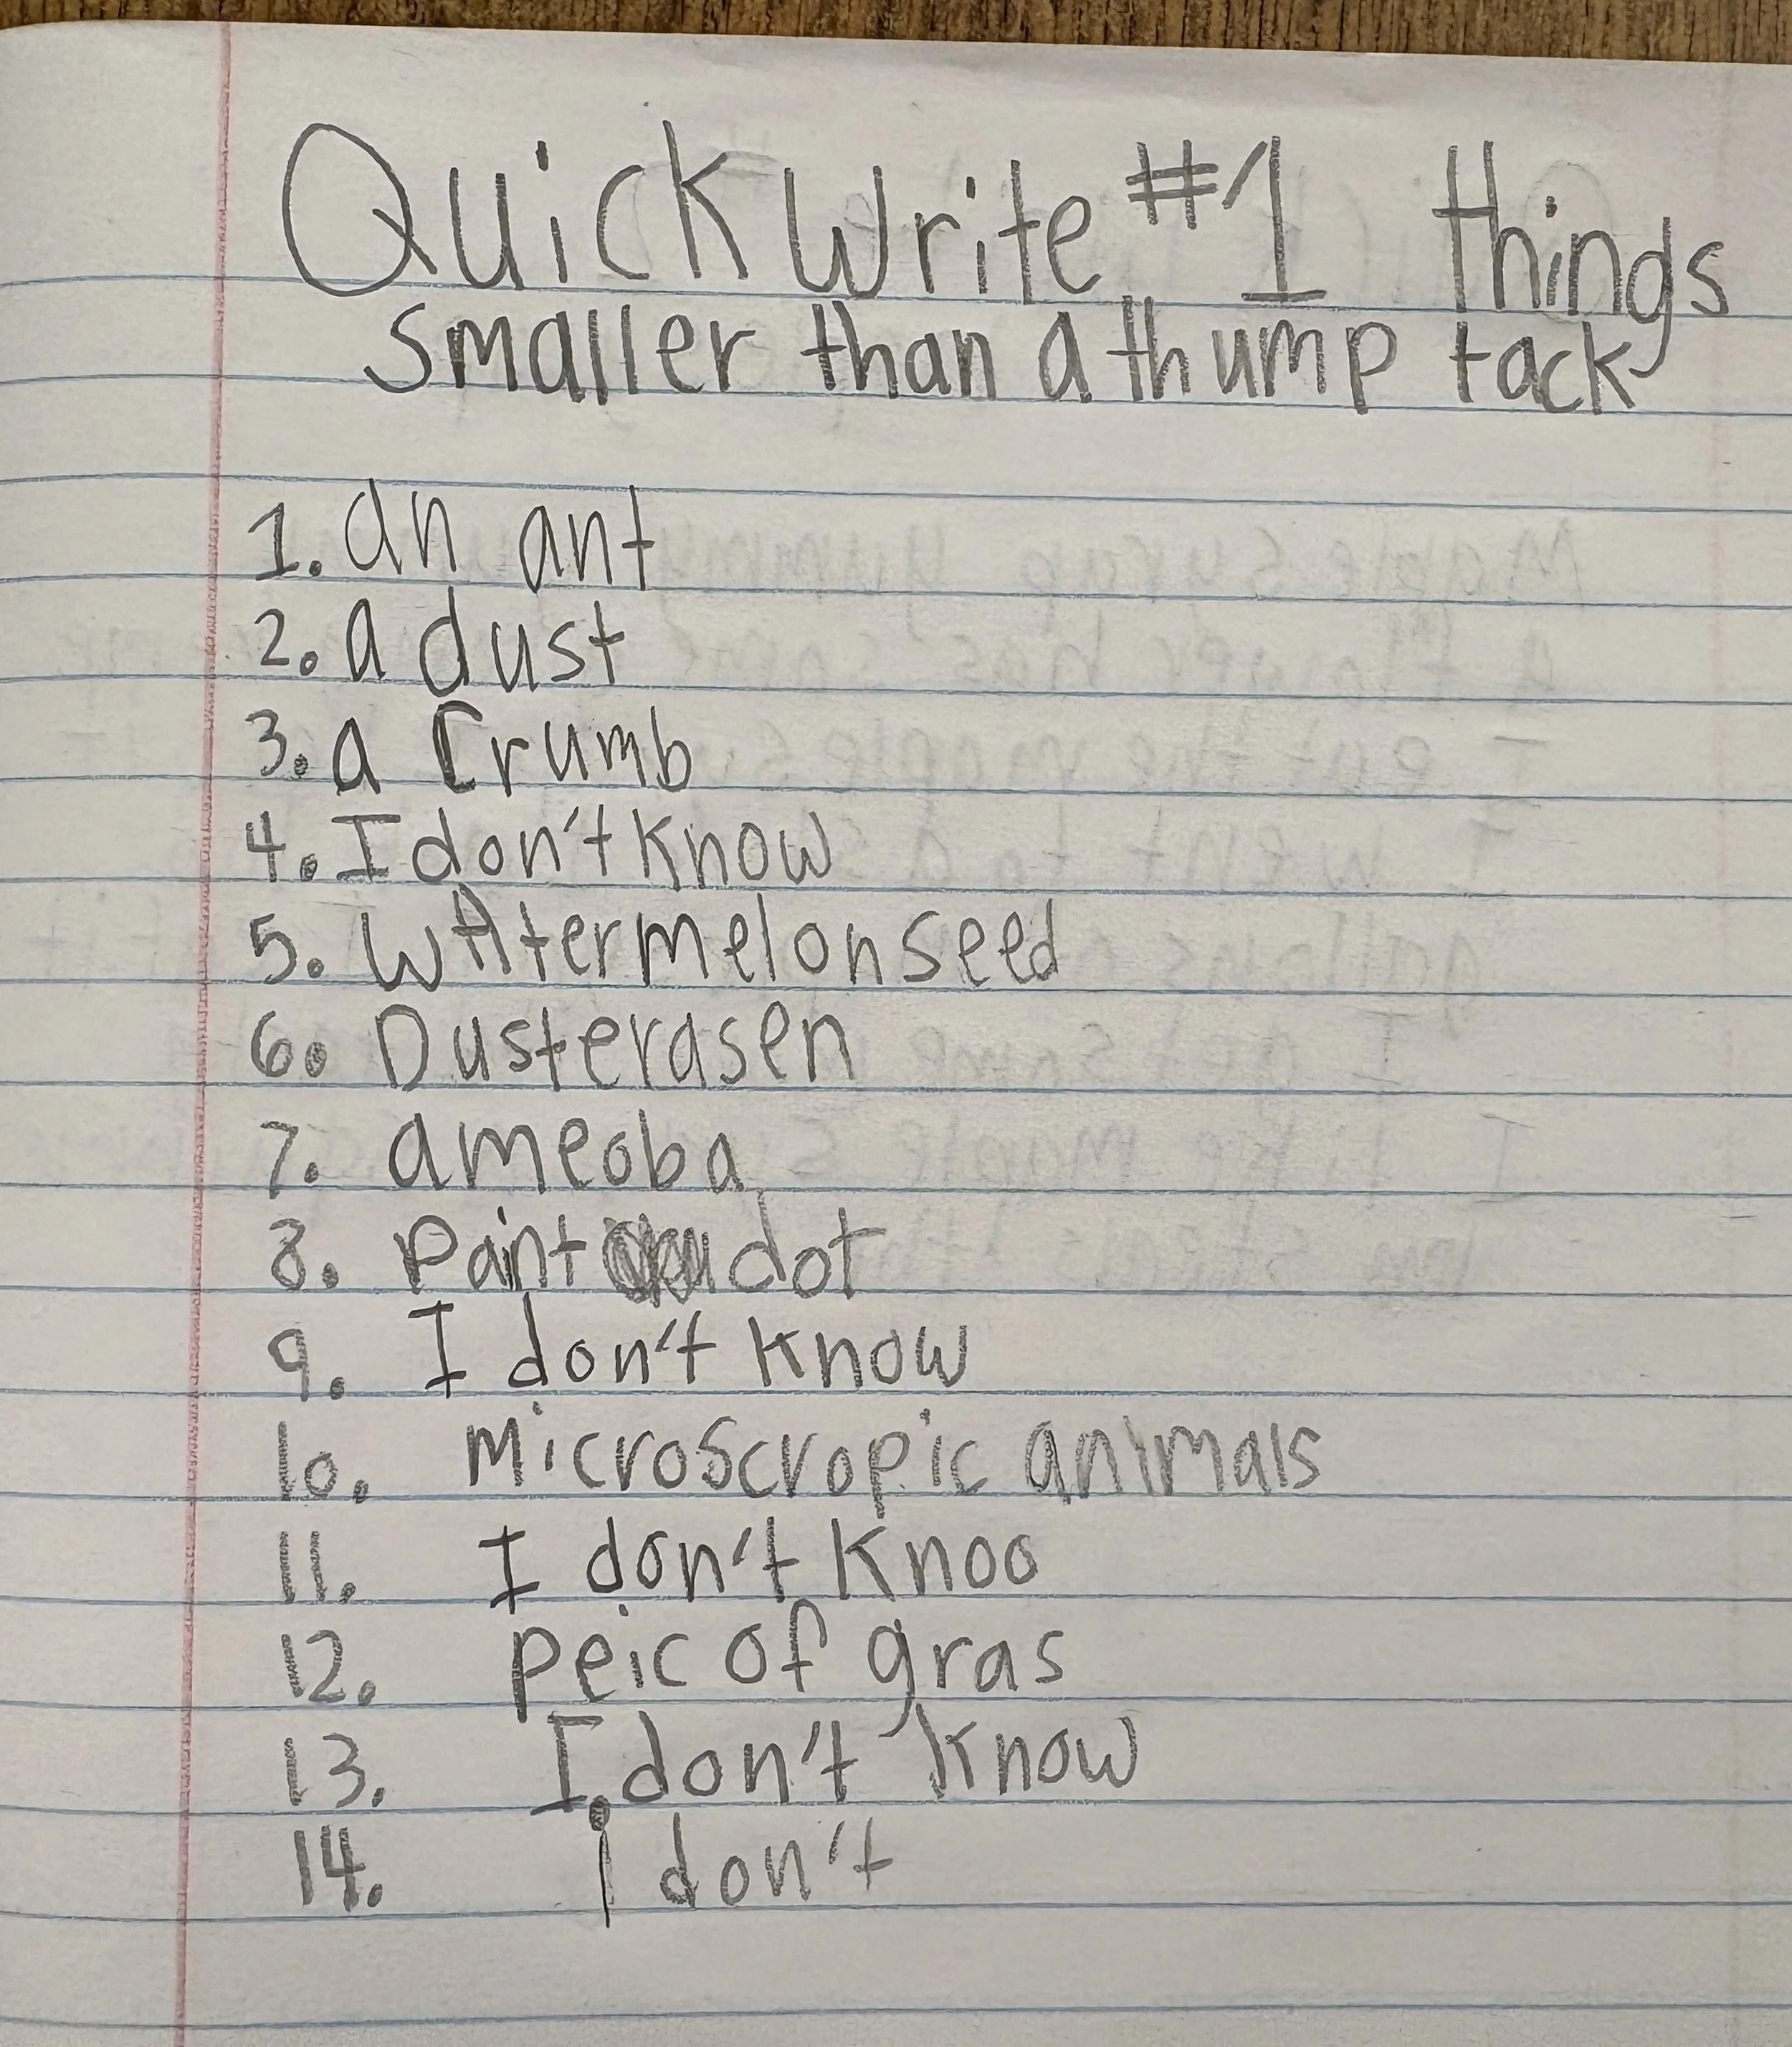 Quick Write #1 things
smaller than a thump tack
1. an ant
2. a dust
3. a Crumb
4. I don't know
5. WAtermelon seed
6. Dusterasen
7. ameoba
8. Paint dot
9. I don't know
10. Microscropic animals
11. I don't Knoo
12. peic of gras
13. I don't know
14. I don't